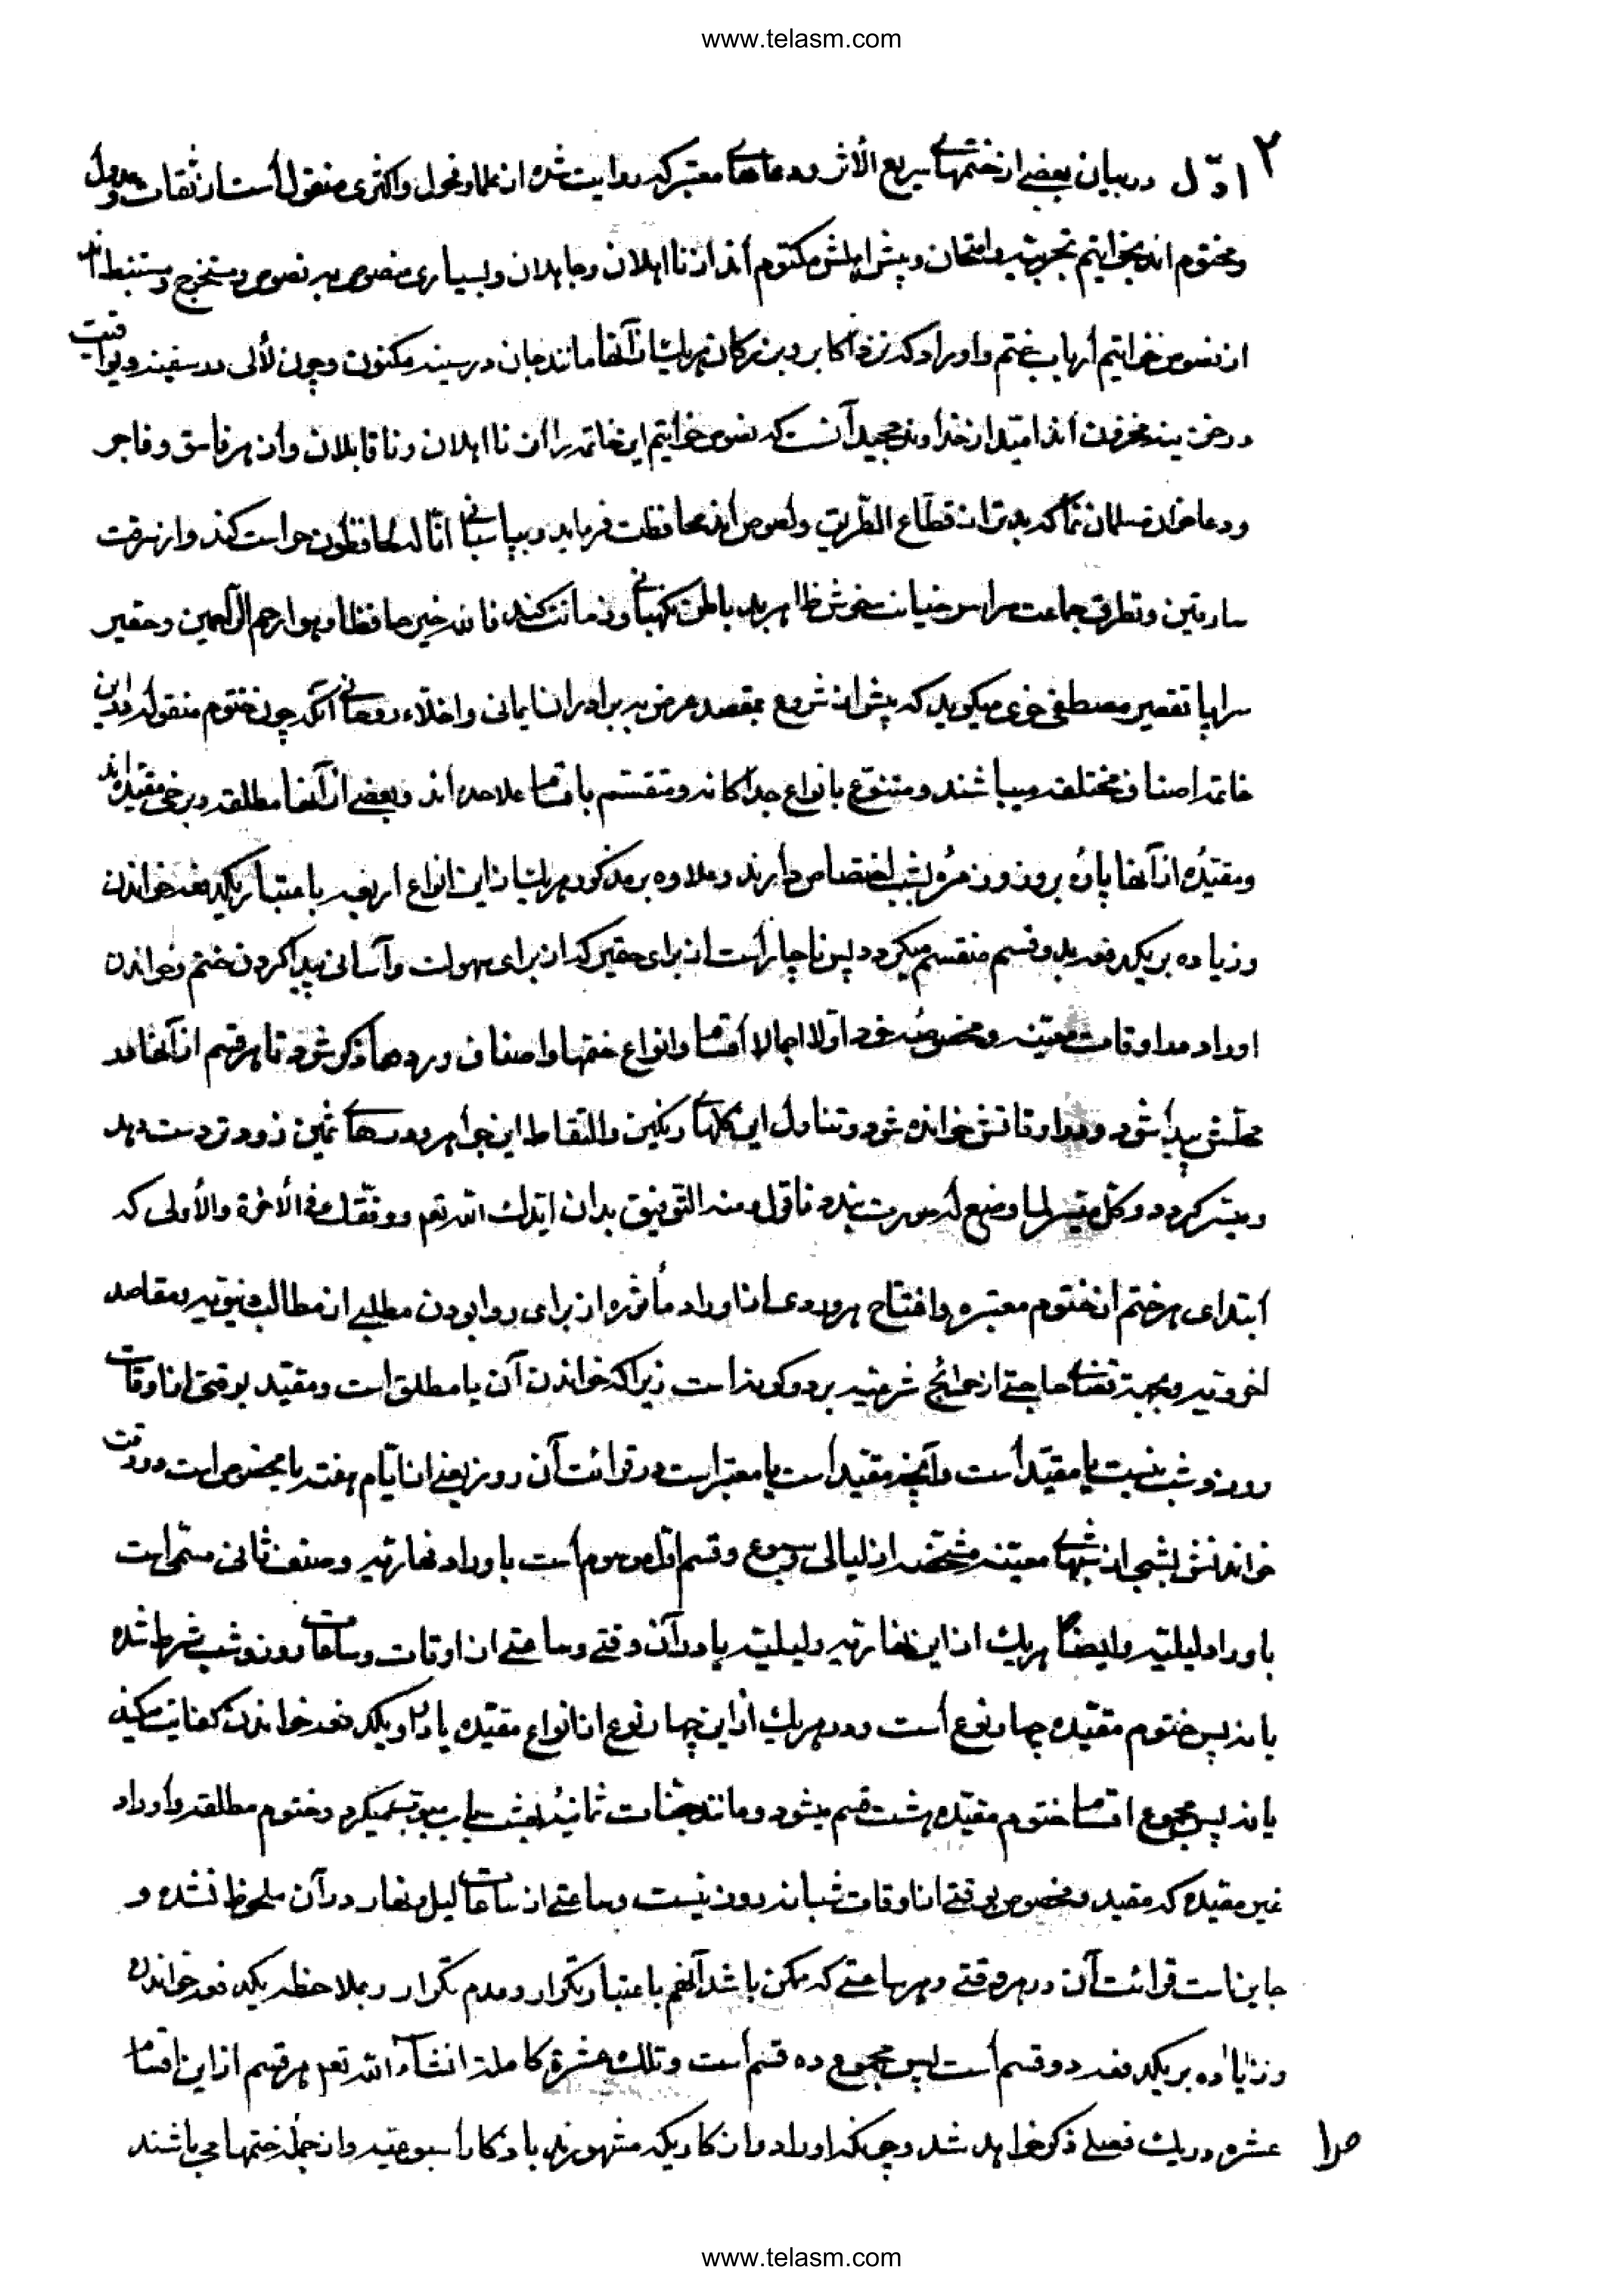 www.telasm.com
۲ اوّل در بیان بعضے از ختمهاے سریع الأثر و دعاهاے معتبر که روایت شده از علما و فحول و اکثری منقول أست از ثقات و عدول
و مختوم اند بخواتیم تجربه و امتحان و پیش اهلش مکتوم أند از نااهلان و جاهلان و بسیاری منصوص بر نصوص و مستخرج و مستنبط اند
از نصوص خواتیم أرباب ختم و اوراد که نزد أکابر و بزرکان هریك از آنها مانند جان در سینه مکنون و چون لألی در سفینه و یواقیت
در خزینه مخزون اند امّید از خداوند مجید آنست که نصوص خواتیم این خاتمه را از نااهلان و ناقابلان و از هر فاسق و فاجر
و دعاخوان مسلمان نما که بدتر از قطّاع الطّریق و لصوص اند محافظت فرماید و بپاسبانے انّا له لحافظون حراست کند و از سرقت
سارقین و تطرق جماعت سراسر خیانت خوش ظاهر بد باطن نکهبانے و زمانت کند فالله خیر حافظا و هو ارحم الرّاحمین و حقیر
سراپا تقصیر مصطفی خوی میکوید که پیش از شروع بمقصد عرض بر برادران ایمانی و اخلاء روحانے آنکه چون ختوم منقوله در این
خاتمه اصناف مختلفه میباشند و متنوّع بانواع جداکانه و منقسم باقسام علاحده اند و بعضے از آنها مطلقه و برخی مقیّده اند
و مقیّده از آنها پاره بروز و زمره بشب اختصاص دارند و علاوه بر مذکور هریك از این انواع اربعه باعتبار یکدفعه خواندن
و زیاده بر یکدفعه بدو قسم منقسم میکردد پس ناچار أست از برای حقیر که از برای سهولت و آسانی پیدا کردن ختم و خواندن
اوراد در اوقات معیّنه و مخصوصه خود اوّلا اجمالا أقسام و انواع ختمها و اصناف وردها ذکر شود تا هر قسم از آنها در
محلّش پیدا شود و در اوقاتش خوانده شود و تناول این کلهاے رنکین و التقاط این جواهر و دررهاے ثمین زودتر دست دهد
و میّسر کردد و کلّ میّسر لما وضع له صورت بندد فاقول و منه التّوفیق بدان ایّدك الله تعم و وفّقك فی الأخرة و الأولی که
أبتدای هر ختم از ختوم معتبره و افتتاح هر وردی از اوراد مأثوره از برای روا بودن مطلبے از مطالب دنیویه و مقاصد
اخرویه و بجهة قضاے حاجتے از حوائج شرعیّه بر دو کونه است زیراکه خواندن آن یا مطلق است و مقیّد بوقتی از اوقات
روز و شب نیست یا مقیّد أست و آنچه مقیّد است یا معتبر است در قرائت آن روز بعضے از ایّام هفته یا مخصوص است در وقت
خواندنش بشبی از شبهاے معیّنه و مشخّصه از لیالی اسبوع و قسم اوّل موسوم أست باوراد نهاریّه و صنف ثانی مسمّی است
باوراد لیلیّه و ایضا هریك از این نهاریّه و لیلیّه یا در آن وقتے و ساعتے از اوقات و ساعات روز و شب شرط شده
یا نه پس ختوم مقیّده چهار نوع أست و در هریك از این چهار نوع از انواع مقیّده یا در او یکدفعه خواندن کفایت میکند
یا نه پس مجموع اقسام ختوم مقیّده هشت قسم میشود و مانند جنّات ثمانیه بهشت باب مبوّب میکردد و ختوم مطلقه و اوراد
غیر مقیّده که مقید و مخصوص بوقتے از اوقات شبانه روز نیست و ساعتے از ساعات لیل و نهار در آن ملحوظ نشده و
جایز است قرائت آن در هر وقتے و هر ساعتے که ممکن باشد آنهم باعتبار تکرار و عدم تکرار و بملاحظه یکدفعه خواندن
و زیاده بر یکدفعه دو قسم أست پس مجموع ده قسم أست و تلك عشرة کاملة انشاء الله تعم هر قسم از این اقسام
عشره در یك فصلے ذکر خواهد شد و چونکه اوراد و اذکاریکه مشهورند باذکار اسبوعیّه و از جمله ختمها می باشند
www.telasm.com